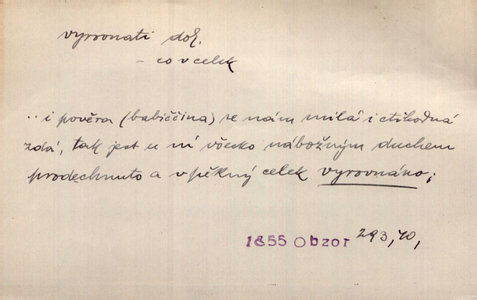 vyrovnati dok.
- co v celek
.. i pověra (babiččina) se nám milá i ctihodná
zdá, tak jest u ní všecko nábožným duchem
prodechnuto a v pěkný celek vyrovnáno;
1855 Obzor 293, 10,